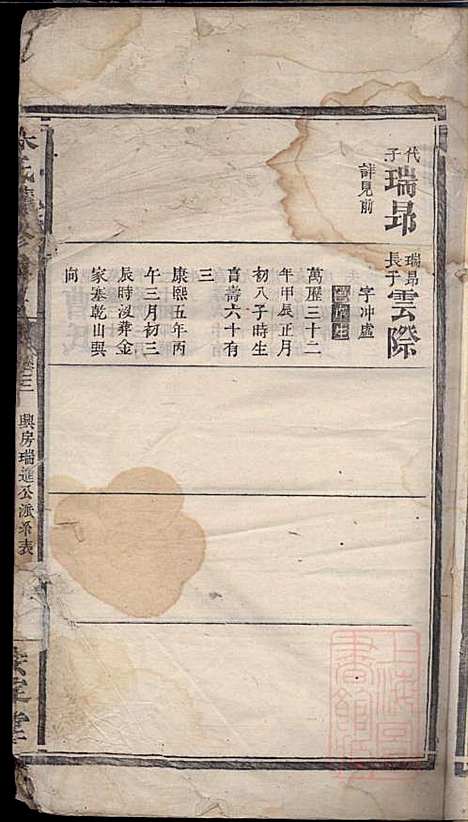 代
子
瑞昻
詳見前
瑞昻
長子
雲際
字冲盧
邑庠生
萬歷三十二
年甲辰正月
初八子時生
享壽六十有
三
康熙五年丙
午三月初三
辰時沒葬金
家塞乾山巽
向
卷三
興房瑞進公派系表
堂